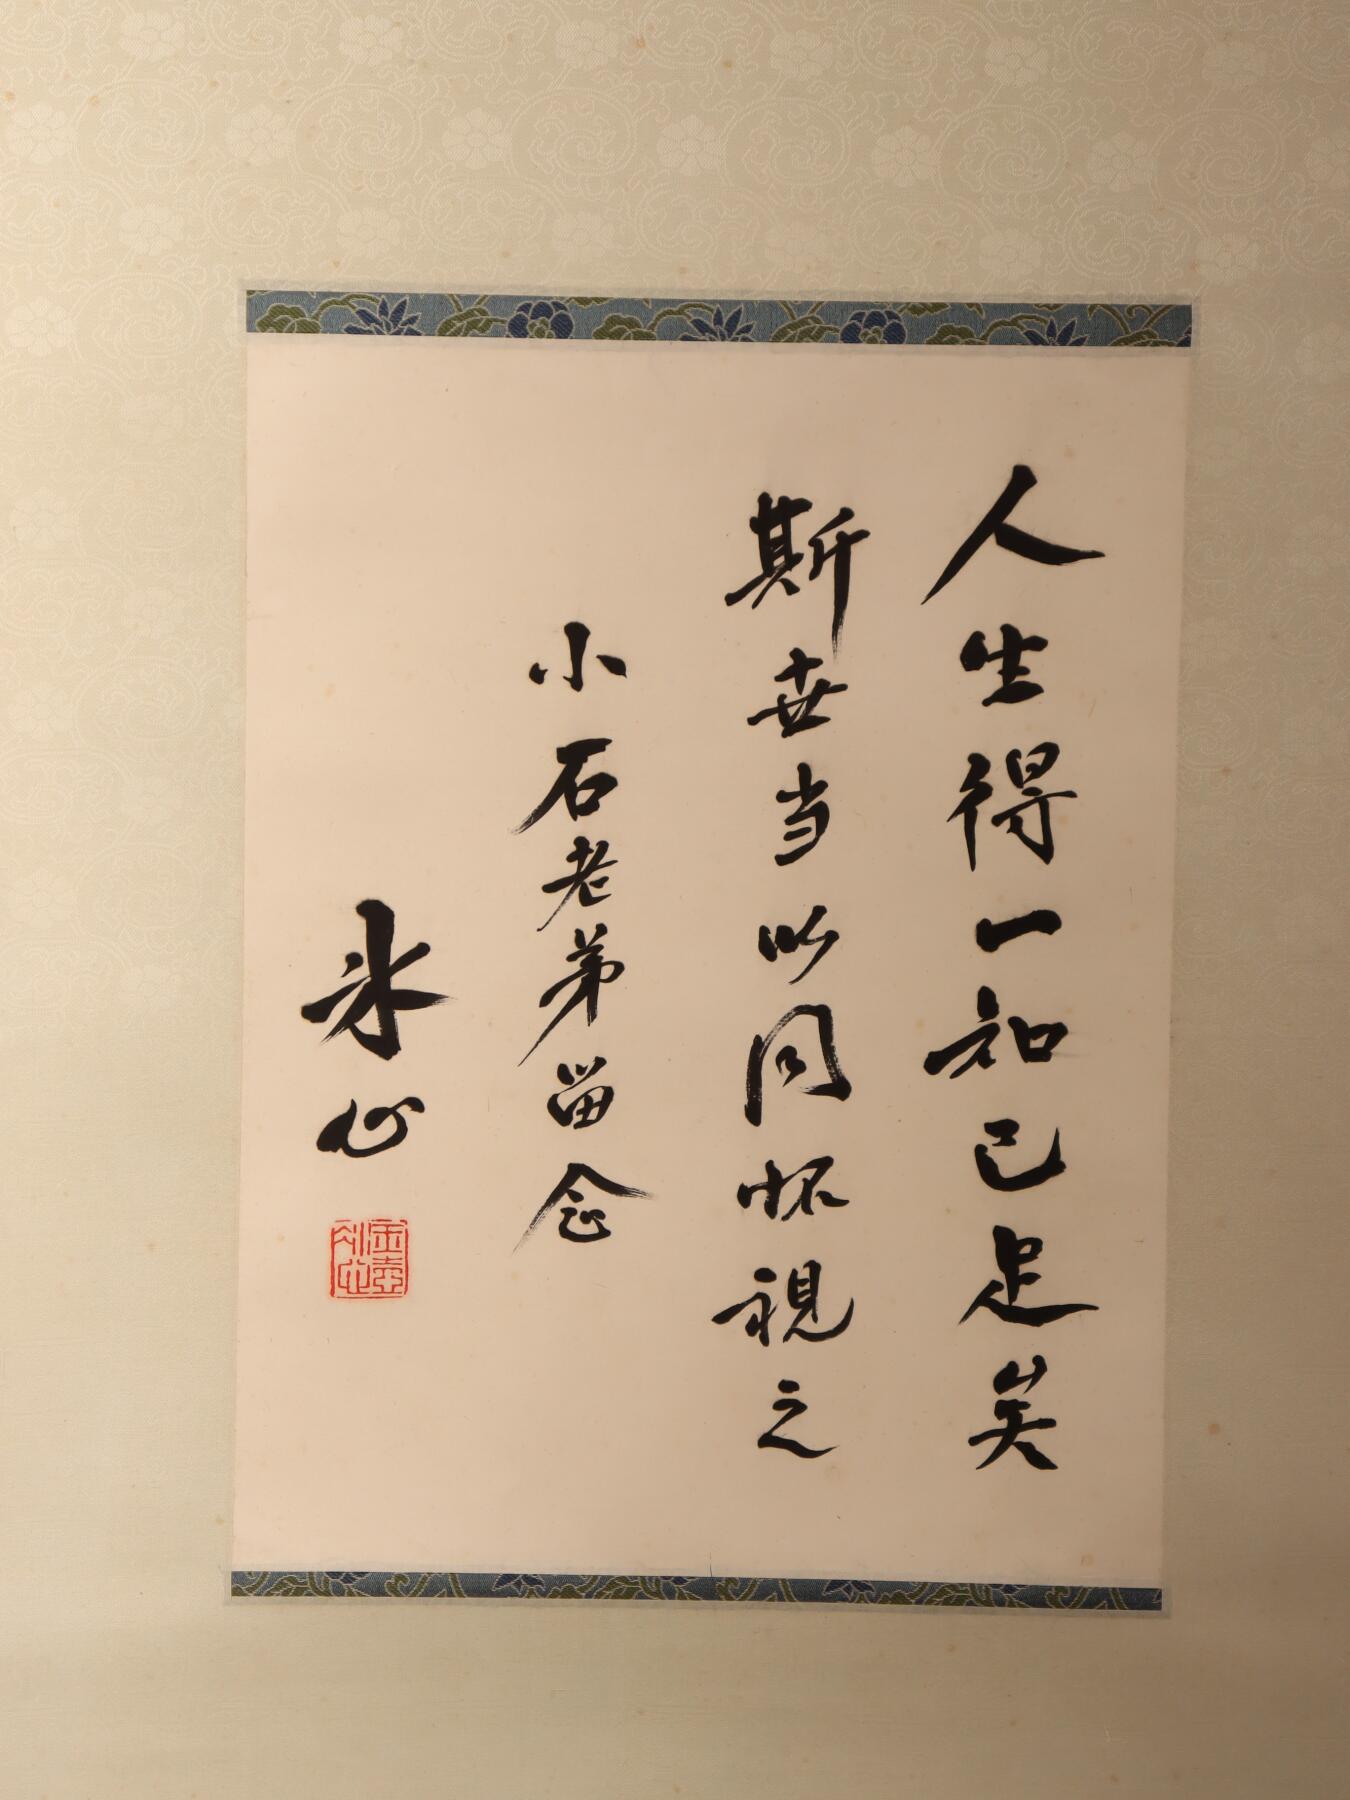 人生得一知己足矣
斯世当以同怀视之
小石老弟留念
冰心